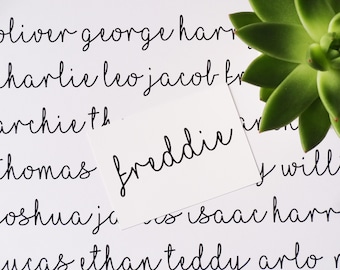 oliver george harry
charlie leo jacob fr
archie th
freddie
thomas y will
joshua ja isaac harr
lucas ethan teddy arlo